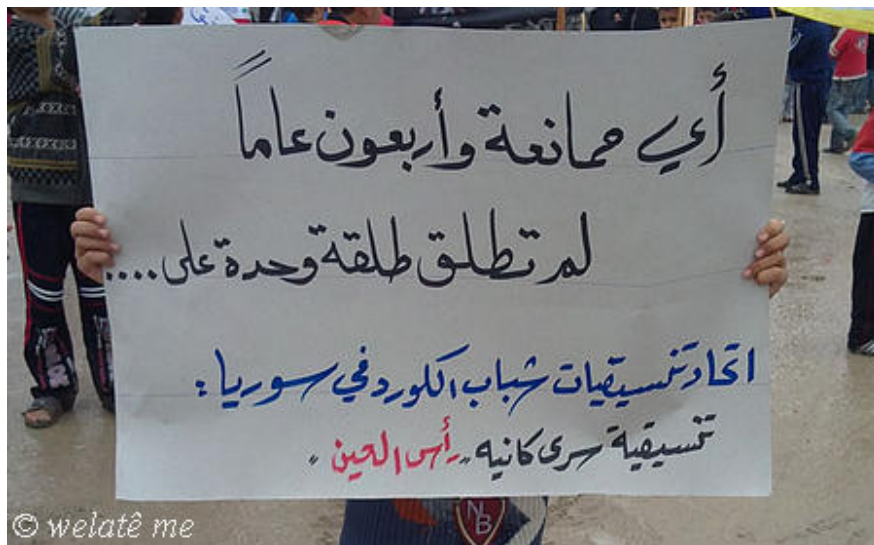 أي ممانعة وأربعون عاماً
لم تطلق طلقة وحدة على....
اتحاد تنسيقيات شباب الكورد في سوريا :
تنسيقية سرى كانيه "رأس العين"
© welatê me
NB